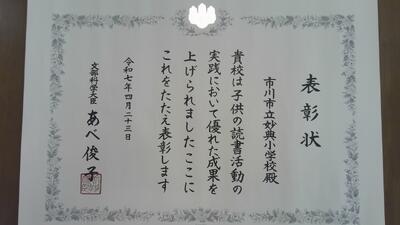 表彰状
市川市立妙典小学校殿
貴校は子供の読書活動の
実践において優れた成果を
上げられましたここに
これをたたえ表彰します
令和七年四月二十三日
文部科学大臣 あべ俊子